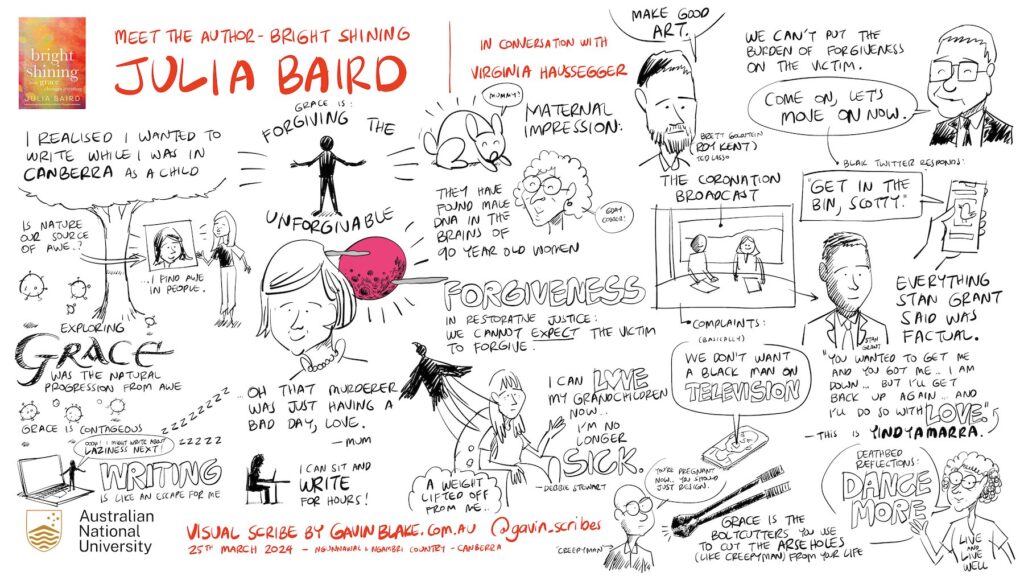 bright
shining
how grace
changes everything
JULIA BAIRD
MEET THE AUTHOR - BRIGHT SHINING
JULIA BAIRD
IN CONVERSATION WITH
VIRGINIA HAUSSEGGER
I REALISED I WANTED TO
WRITE WHILE I WAS IN
CANBERRA AS A CHILD
IS NATURE
OUR SOURCE
OF AWE..?
...I FIND AWE
IN PEOPLE.
EXPLORING
GRACE
WAS THE NATURAL
PROGRESSION FROM AWE
GRACE IS CONTAGEOUS
OOOH! I MIGHT WRITE ABOUT
LAZINESS NEXT!
ZZZZZZZZ
ZZZZZ
WRITING
IS LIKE AN ESCAPE FOR ME
GRACE IS:
FORGIVING THE
UNFORGIVABLE
...OH THAT MURDERER
WAS JUST HAVING A
BAD DAY, LOVE.
- MUM
I CAN SIT AND
WRITE
FOR HOURS!
MUMMY?
MATERNAL
IMPRESSION:
THEY HAVE
FOUND MALE
DNA IN THE
BRAINS OF
90 YEAR OLD WOMEN
GDAY
COBBER!
FORGIVENESS
IN RESTORATIVE JUSTICE:
WE CANNOT EXPECT THE VICTIM
TO FORGIVE.
I CAN LOVE
MY GRANDCHILDREN
NOW...
I'M NO
LONGER
SICK.
- DEBBIE STEWART
A WEIGHT
LIFTED OFF
FROM ME...
MAKE GOOD
ART.
BRETT GOLDSTEIN
(ROY KENT)
TED LASSO
THE CORONATION
BROADCAST
COMPLAINTS:
(BASICALLY)
WE DON'T WANT
A BLACK MAN ON
TELEVISION
WE CAN'T PUT THE
BURDEN OF FORGIVENESS
ON THE VICTIM.
COME ON, LET'S
MOVE ON NOW.
BLAK TWITTER RESPONDS:
"GET IN THE
BIN, SCOTTY."
STAN
GRANT
EVERYTHING
STAN GRANT
SAID WAS
FACTUAL.
"YOU WANTED TO GET ME
AND YOU GOT ME... I AM
DOWN... BUT I'LL GET
BACK UP AGAIN... AND
I'LL DO SO WITH LOVE."
- THIS IS YINDYAMARRA.
YOU'RE PREGNANT
NOW... YOU SHOULD
JUST RESIGN.
"CREEPYMAN"
GRACE IS THE
BOLTCUTTERS YOU USE
TO CUT THE ARSEHOLES
(LIKE CREEPYMAN) FROM YOUR LIFE
DEATHBED
REFLECTIONS:
DANCE
MORE
LIVE
AND
LIVE
WELL
Australian
National
University
VISUAL SCRIBE BY GAVINBLAKE.COM.AU @gavin_scribes
25TH MARCH 2024 - NGUNNAWAL & NGAMBRI COUNTRY - CANBERRA